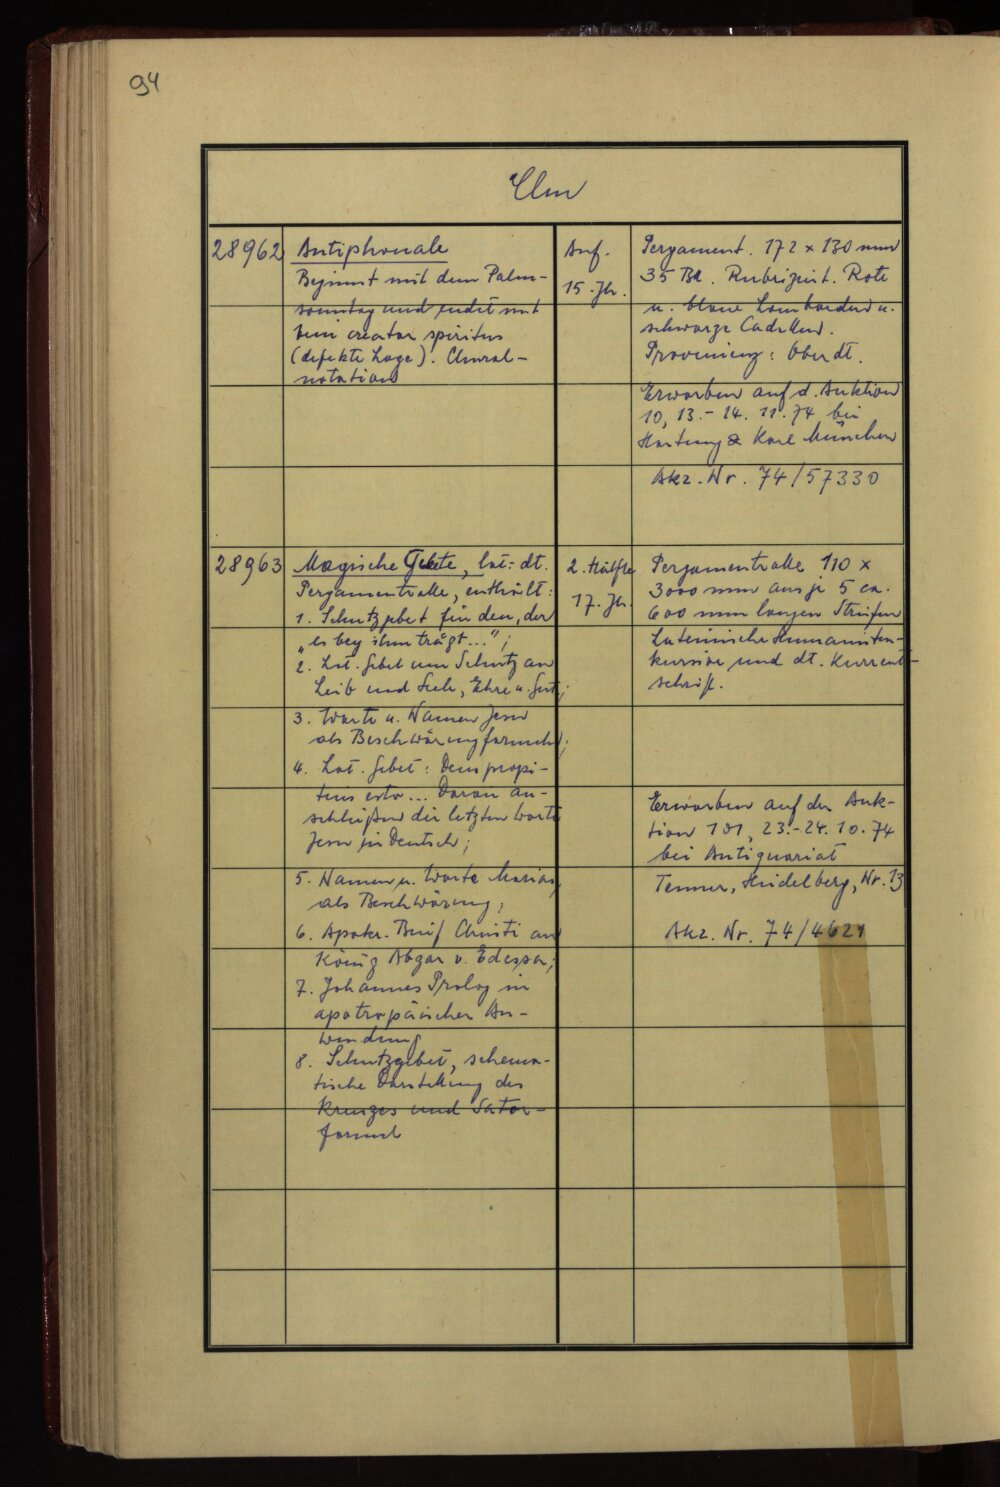 94
Clm
28962
Antiphonale
Beginnt mit dem Palm-
sonntag und endet mit
veni creator spiritus
(defekte Lage). Choral-
notation
Anf.
15. Jh.
Pergament. 172 x 130 mm
35 Bl. Rubriziert. Rote
u. blaue Lombarden u.
schwarze Cadellen.
Provenienz: Oberdt.
Erworben auf d. Auktion
10, 13.-14. 11. 74 bei
Hartung & Karl München
Akz. Nr. 74/57330
28963
Magische Gebete, lat.-dt.
Pergamentrolle, enthält:
1. Schutzgebet für den, der
"es bey ihm trägt...";
2. Lat. Gebet um Schutz an
Leib und Seele, Ehre u. Gut;
3. Worte u. Namen Jesu
als Beschwörungsformeln;
4. Lat. Gebet: Deus propi-
tius esto... Daran an-
schließend die letzten Worte
Jesu in Deutsch;
5. Namen u. Worte Marias,
als Beschwörung;
6. Apokr. Brief Christi an
König Abgar v. Edessa;
7. Johannes Prolog in
apotropäischer An-
wendung
8. Schutzgebet, schema-
tische Darstellung des
Kreuzes und Sator-
formel
2. Hälfte
17. Jh.
Pergamentrolle 110 x
3000 mm aus je 5 ca.
600 mm langen Streifen
Lateinische Humanisten-
kursive und dt. Kurrent-
schrift.
Erworben auf der Auk-
tion 101, 23.-24. 10. 74
bei Antiquariat
Tenner, Heidelberg, Nr. 13
Akz. Nr. 74/4621